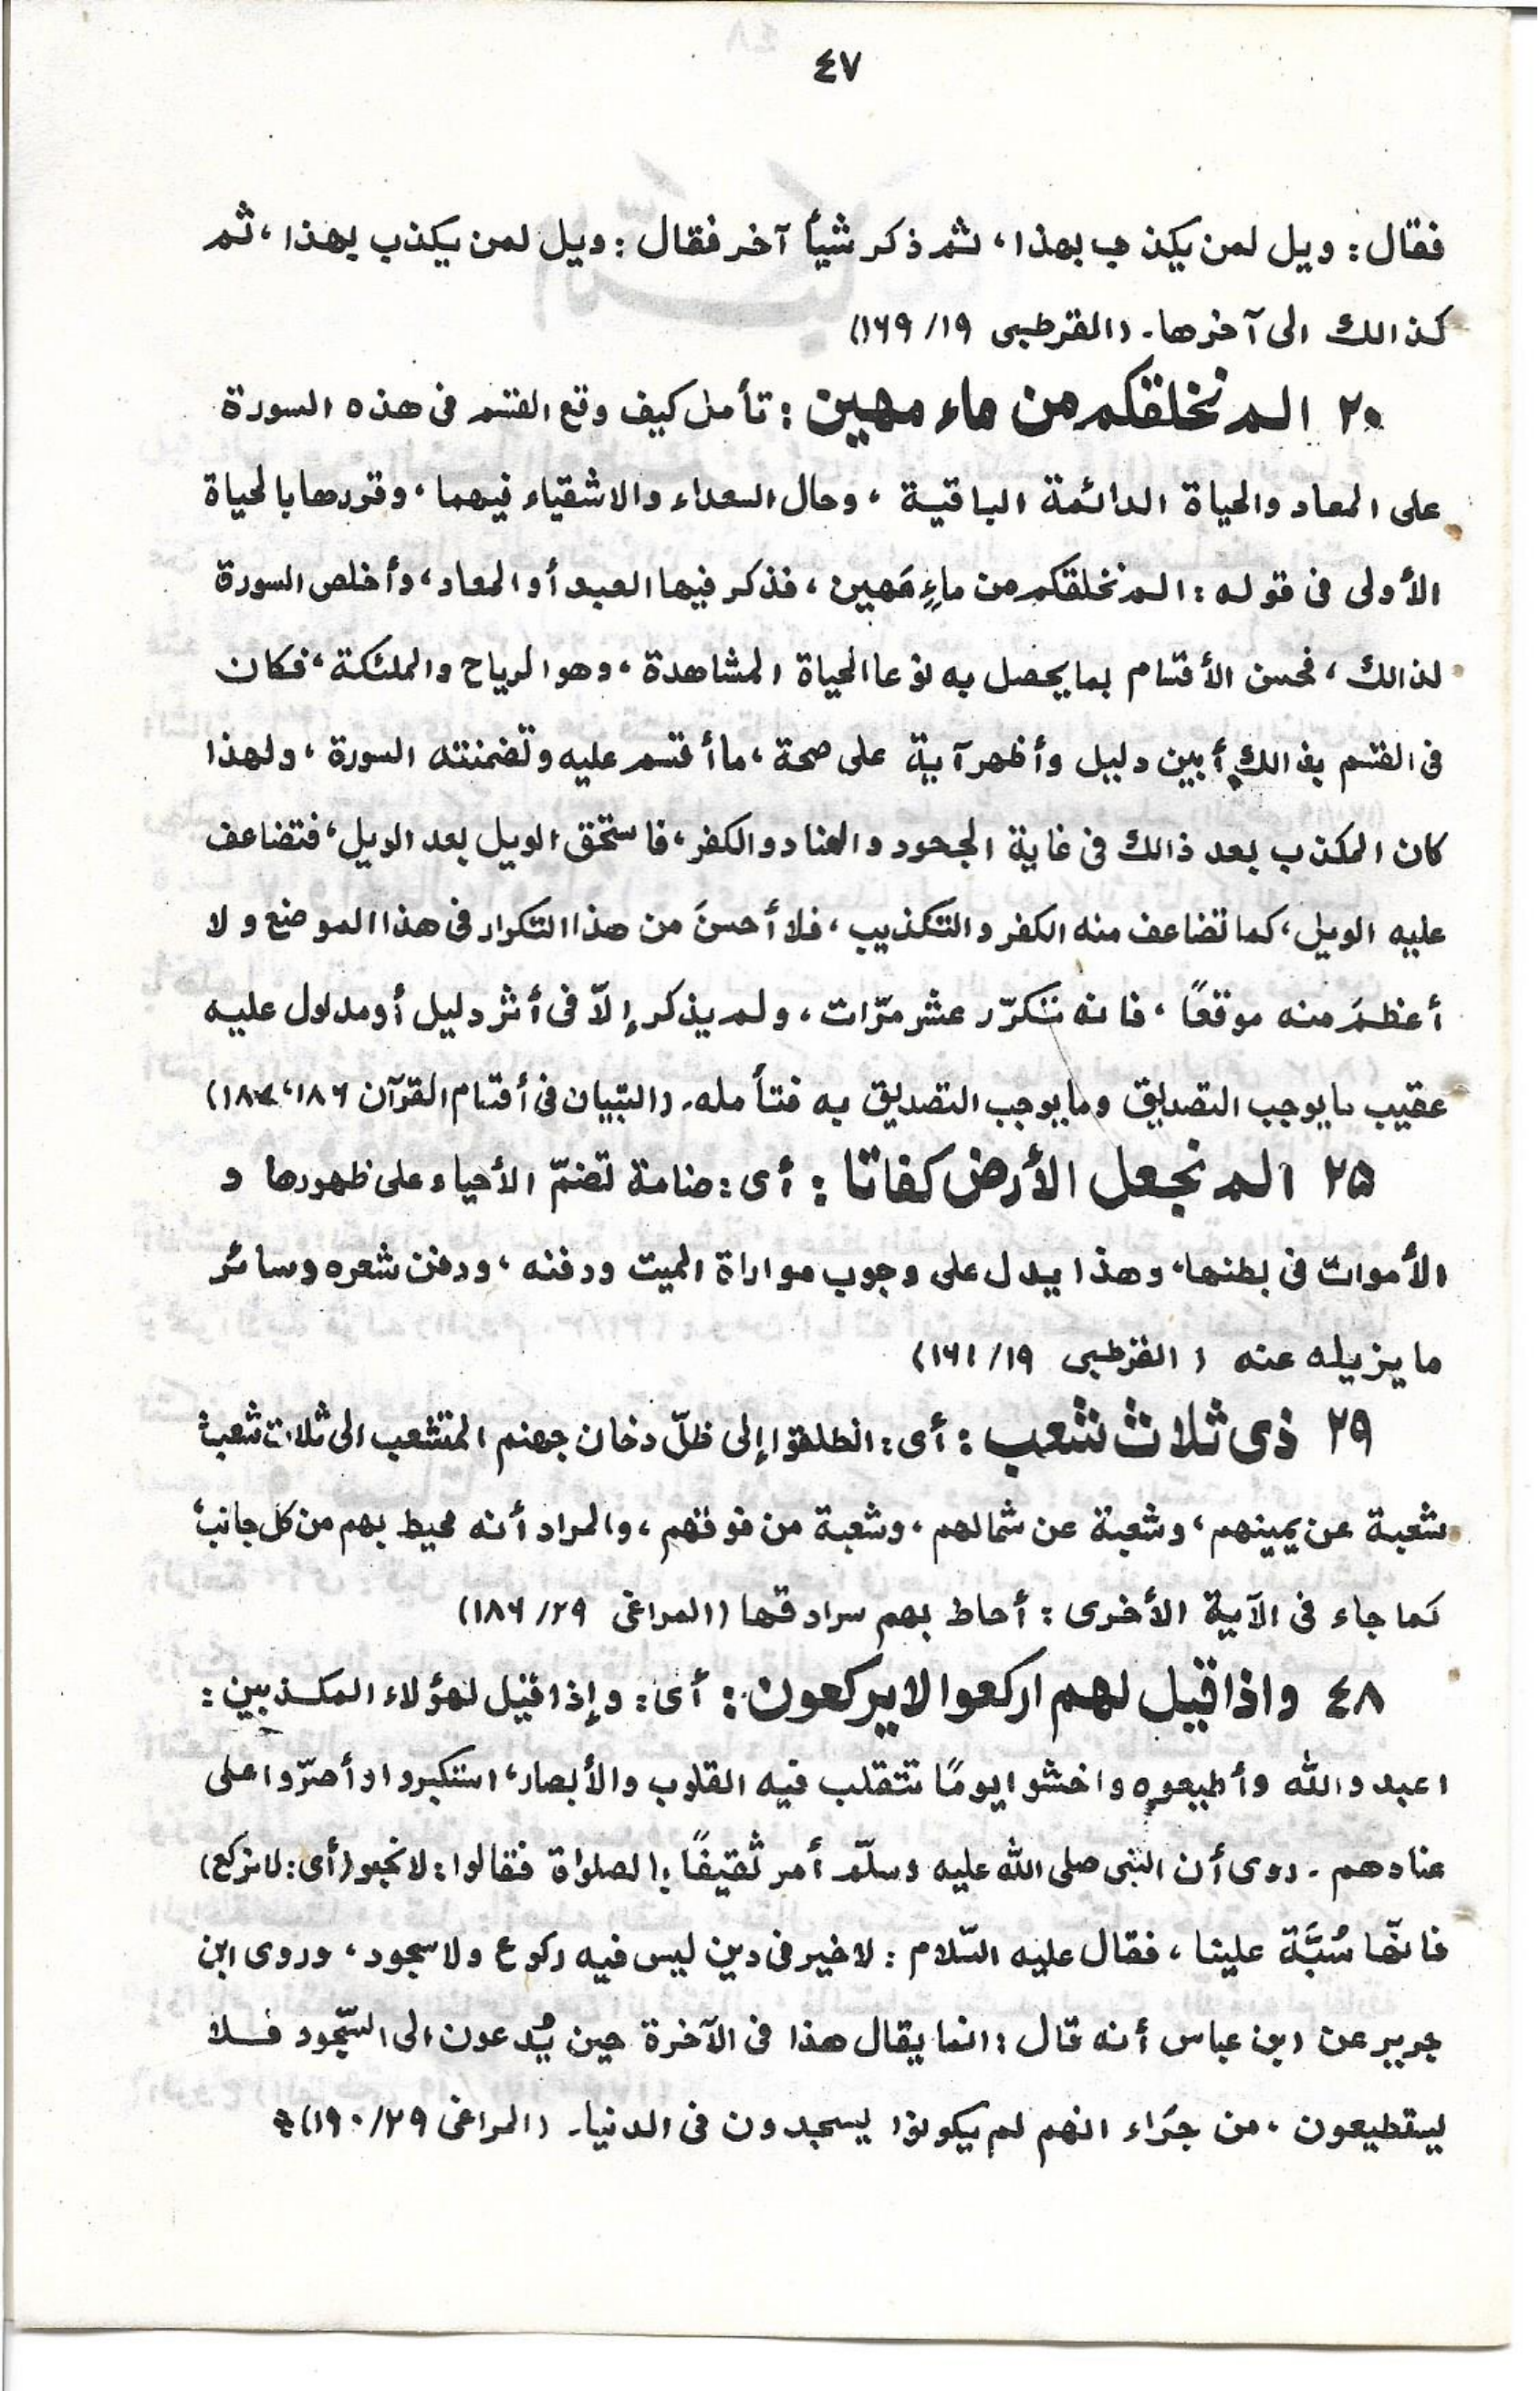 ٤٧
فقال: ويل لمن يكذب بهذا، ثم ذكر شيأً آخر فقال: ويل لمن يكذب بهذا، ثم
كذالك الى آخرها۔ (القرطبى ١٩/ ١٦٩)
٢٠ الم نخلقكم من ماء مهين: تأمل كيف وقع القسم فى هذه السورة
على المعاد والحياة الدائمة الباقية، وحال السعداء والاشقياء فيهما، وقررها بالحياة
الأولى فى قوله: الم نخلقكم من ماءٍ مَهين، فذكر فيها العبد أو المعاد، وأخلص السورة
لذالك، فحسن الأقسام بما يحصل به نوعا الحياة المشاهدة، وهو الرياح والملئكة، فكان
فى القسم بذالك أبين دليل وأظهر آية على صحة، ما أقسم عليه وتضمنته السورة، ولهذا
كان المكذب بعد ذالك فى غاية الجحود والعناد والكفر، فاستحق الويل بعد الويل، فتضاعف
عليه الويل، كما تضاعف منه الكفر والتكذيب، فلا أحسنَ من هذا التكرار فى هذا الموضع ولا
أعظمَ منه موقعًا، فانه تتكرّر عشر مرّات، ولم يذكر إلاّ فى أثر دليل أو مدلول عليه
عقيب ما يوجب التصديق وما يوجب التصديق به فتأمله۔ (التبيان فى أقسام القرآن ١٨٦، ١٨٧)
٢٥ الم نجعل الأرض كفاتا: أى: ضامة تضمّ الأحياء على ظهورها و
الأموات فى بطنها، وهذا يدل على وجوب مواراة الميت ودفنه، ودفن شعره وسائر
ما يزيله عنه (القرطبى ١٩/ ١٦١)
٢٩ ذى ثلاث شعب: أى: انطلقوا إلى ظلّ دخان جهنم المتشعب الى ثلاث شعب؛
شعبة عن يمينهم، وشعبة عن شمالهم، وشعبة من فوقهم، والمراد أنه محيط بهم من كل جانب؛
كما جاء فى الآية الأخرى: أحاط بهم سرادقها (المراغى ٢٩/ ١٨٦)
٤٨ واذا قيل لهم اركعوا لايركعون: أى: وإذا قيل لهؤلاء المكذبين:
اعبدوالله وأطيعوه واخشوا يومًا تتقلب فيه القلوب والأبصار، استكبروا وأصرّوا على
عنادهم۔ روى أن النبى صلى الله عليه وسلّم أمر ثقيفًا بالصلواة فقالوا: لا نحبو (أى: لا نركع)
فانّها سُبَّة علينا، فقال عليه السّلام: لا خير فى دين ليس فيه ركوع ولا سجود، وروى ابن
جرير عن ابن عباس أنه قال: انما يقال هذا فى الآخرة حين يُدعون الى السّجود فلا
ليستطيعون، من جرّاء انهم لم يكونوا يسجدون فى الدنيا۔ (المراغى ٢٩/ ١٩٠)